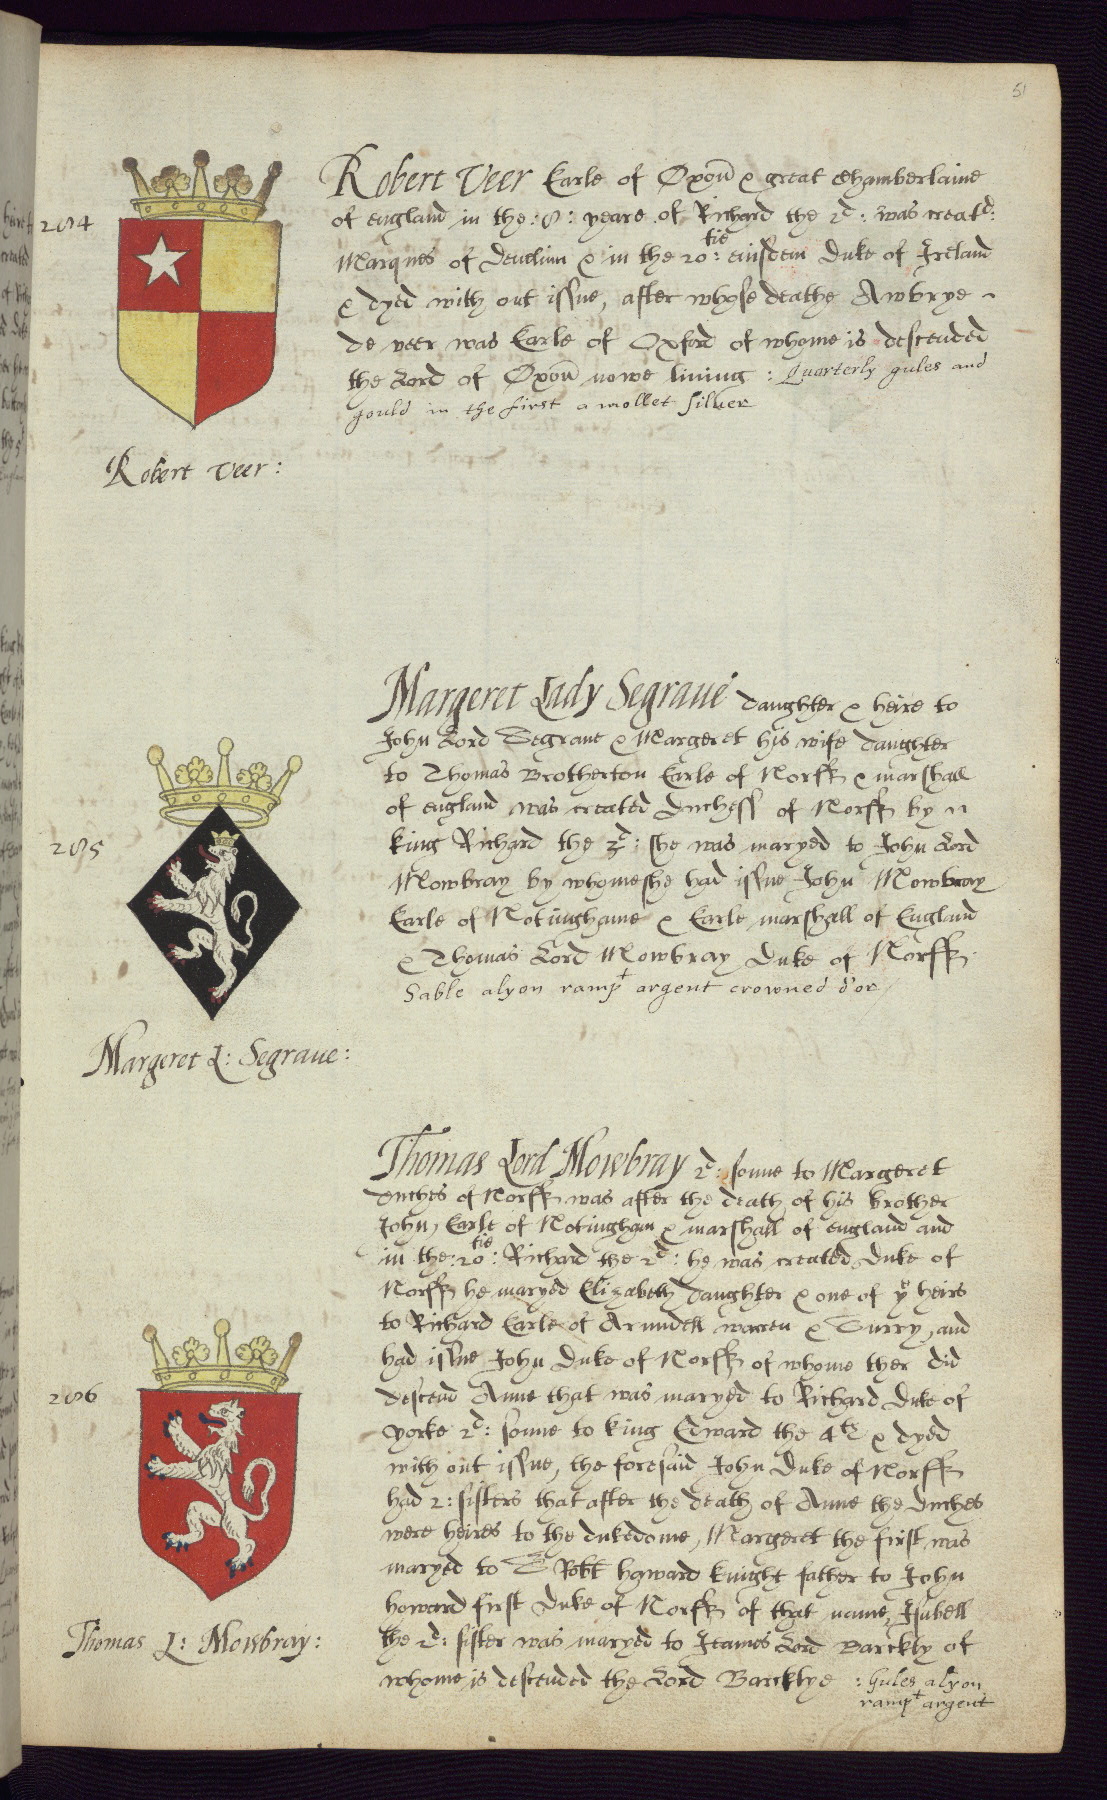 51
204
Robert Veer Earle of Oxoñ & great Chamberlaine
of England in the :8: yeare of Richard the 2d: was creatd:
Marques of Deuelinn & in the 20tie: eiusdem Duke of Ireland
& dyed with out issue, after whose deathe Awbrye
de veer was Earle of Oxford of whome is descended
the Lord of Oxoñ nowe liuing : Quarterly gules and
gould in the first a mollet siluer
Robert Veer:
205
Margeret Lady Segraue daughter & heire to
John Lord Segraue & Margeret his wife daughter
to Thomas Brotherton Earle of Norff & marshall
of England was created Duchess of Norff by
king Richard the 2d: she was maryed to John Lord
Mowbray by whome she had issue John Mowbray
Earle of Notinghame & Earle marshall of England
& Thomas Lord Mowbray Duke of Norff
Sable a lyon rampt argent crowned d'or
Margeret L: Segraue:
206
Thomas Lord Mowbray 2d: sonne to Margeret
Duches of Norff was after the death of his brother
John, Earle of Notingham & marshall of England and
in the :20tie: Richard the 2d: he was created Duke of
Norff he maryed Elizabeth daughter & one of ye heirs
to Richard Earle of Arundell warren & Surry, and
had issue John Duke of Norff of whome ther did
descend Anne that was maryed to Richard Duke of
yorke 2d: sonne to king Edward the 4th & dyed
with out issue, the foresaid John Duke of Norff
had 2: sisters that after the death of Anne the Duches
were heires to the dukedome, Margeret the first was
maryed to S Robt haward knight father to John
howard first Duke of Norff of that name, Isabell
the 2d: sister was maryed to Ieames Lord Barckly of
whome is descended the Lord Barcklye : Gules a lyon
rampt argent
Thomas L: Mowbray: